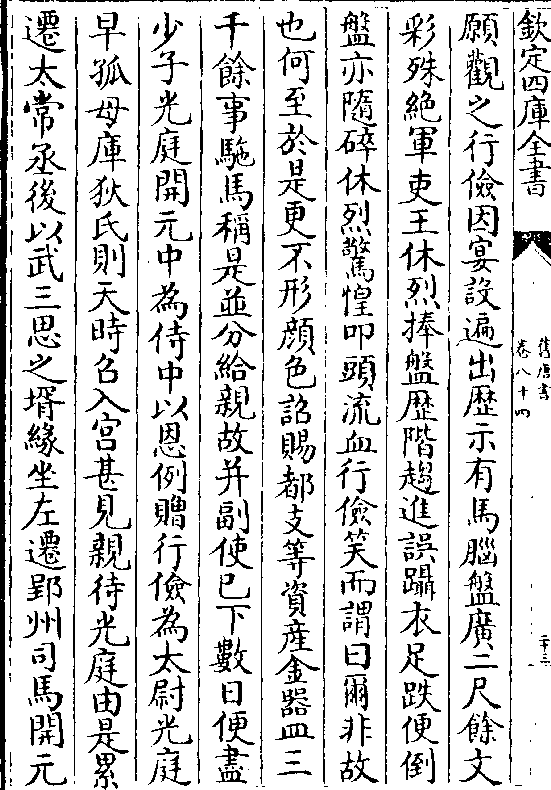 欽定四庫全書
舊唐書
卷八十四
二十三
願觀之行儉因宴設遍出歷示有馬腦盤廣二尺餘文
彩殊絶軍吏王休烈捧盤歷階趨進誤躡衣足跌便倒
盤亦隨碎休烈驚惶叩頭流血行儉笑而謂曰爾非故
也何至於是更不形顔色詔賜都支等資産金器皿三
千餘事駞馬稱是並分給親故并副使已下數日便盡
少子光庭開元中為侍中以恩例贈行儉為太尉光庭
早孤母庫狄氏則天時召入宫甚見親待光庭由是累
遷太常丞後以武三思之壻緣坐左遷郢州司馬開元